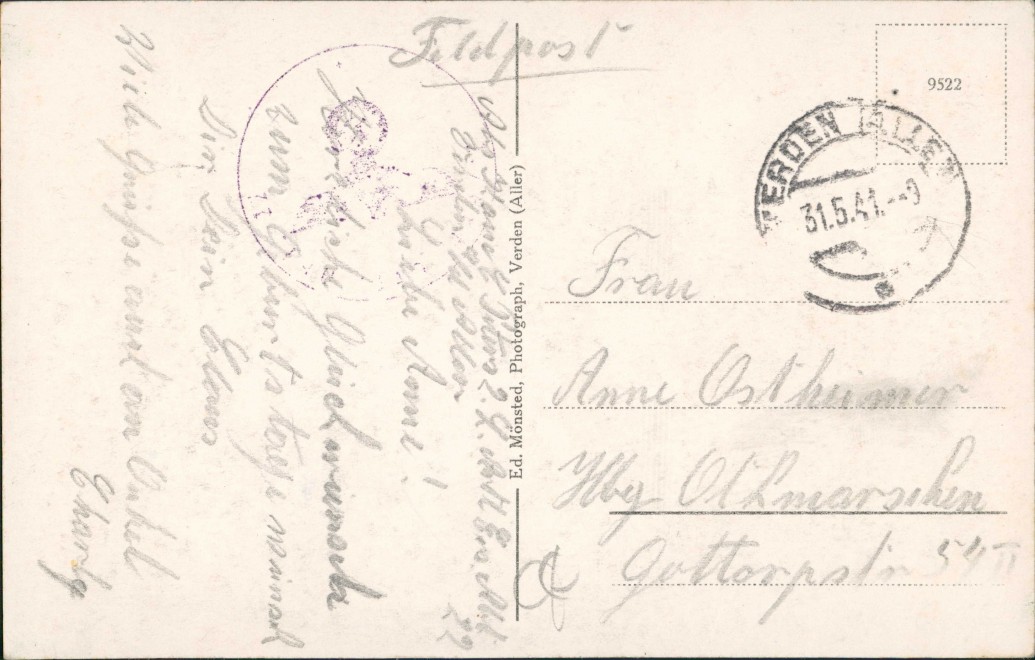 Feldpost
Liebe Anne!
Herzliche Glückwünsche
zum Geburtstage wünscht
Dir Dein Claus
Viele Grüsse auch an Onkel
Charly
Ed. Mönsted, Photograph, Verden (Aller)
9522
VERDEN (ALLER)
31.5.41.--9
Frau
Anne Ostheimer
Hbg Othmarschen
Gottorpstr 54 II